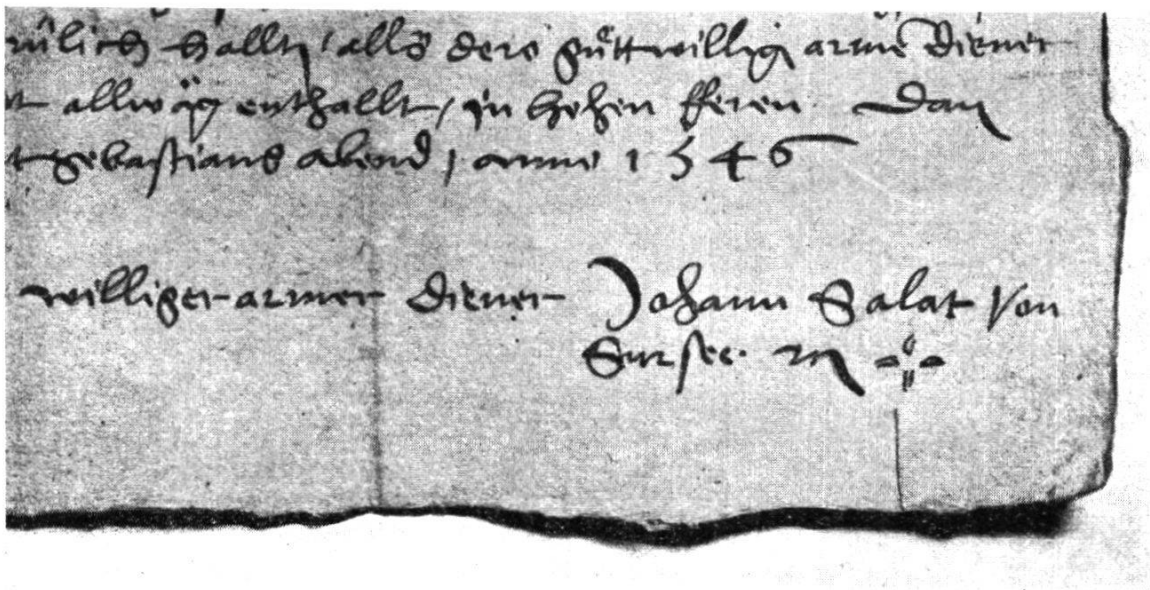 hallt, alls dero gůttwillig arme diener
allwäg enthallt, in hehen fferen Dan
sebastians abend, anno 1546
williger armer diener Johann Salat Von
Sursee. m